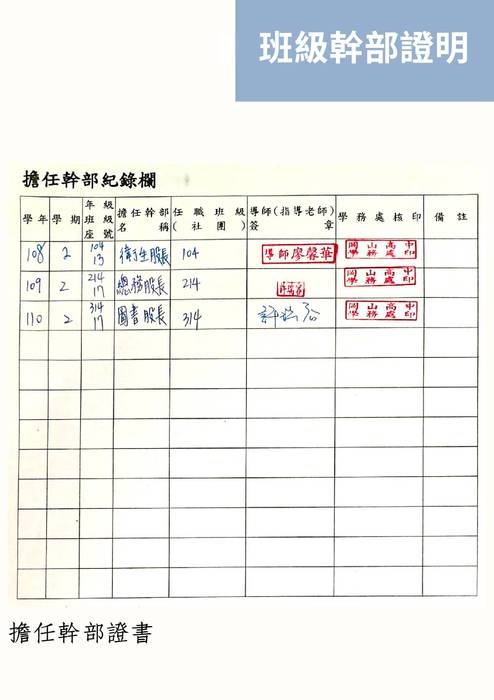 班級幹部證明
擔任幹部紀錄欄
學年 學期 年級班級座號 擔任幹部名稱 任職班級(社團) 導師(指導老師)簽章 學務處核印 備註
108 2 104 13 衛生股長 104 導師廖馨華 岡山高中學務處印
109 2 214 17 總務股長 214 岡山高中學務處印
110 2 314 17 圖書股長 314 岡山高中學務處印
擔任幹部證書